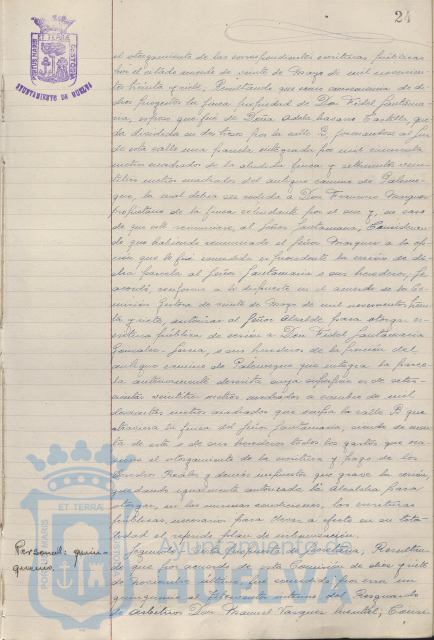 24
AYUNTAMIENTO DE HUELVA
el otorgamiento de las correspondientes escrituras públicas
con el citado acuerdo de veinte de Mayo de mil novecien-
tos treinta y siete, Resultando que como consecuencia de di-
chos proyectos la finca propiedad de Don Fidel Santama-
ria, esposo que fué de Doña Adela
dividida en dos trozos por la calle B, formandose al
de esta calle una parcela integrada por mil cincuenta
metros cuadrados de la aludida finca y setecientos vein-
titres metros cuadrados del antiguo camino de Palome-
que, la cual debia ser cedida a Don Francisco Marquez
propietario de la finca colindante por el sur y, en caso
de que este renunciare, al Señor Santamaria, Consideran-
do que habiendo renunciado el Señor Marquez a la op-
ción que le fué concedida es procedente la cesión de di-
cha parcela al Señor Santamaria o sus herederos, Se
acordó, conforme a lo dispuesto en el acuerdo de la Co-
misión Gestora de veinte de Mayo de mil novecientos trein-
ta y siete, autorizar al Señor Alcalde para otorgar es-
critura pública de cesión a Don Fidel Santamaria
Gonzalez- o sus herederos de la porción del
antiguo camino de Palomeque que integra la parce-
la anteriormente descrita cuya superficie es de sete-
cientos veintitres metros cuadrados a cambio de mil
doscientos metros cuadrados que ocupa la calle B que
atraviesa la finca del Señor Santamaria, siendo de cuen-
ta de este o de sus herederos todos los gastos que oca-
sione el otorgamiento de la escritura y pago de los
Derechos Reales y demás impuestos que grave la cesión,
quedando igualmente autorizada la Alcaldia para
otorgar, en las mismas condiciones, las escrituras
públicas, necesarias para llevar a efecto en su tota-
lidad el referido plan de urbanización.
Personal: quin-
quenio.
Seguidamente a la propuesta de Secretaria, Resultan-
do que por acuerdo de esta Comisión de diez y siete
de Noviembre último fué concedido, por error un
quinquenio al interino del Resguardo
de Arbitrios Don Manuel Vazquez Consi-
Ayuntamiento de
PORTUS MARIS
ET TERRAE
CUSTODIA